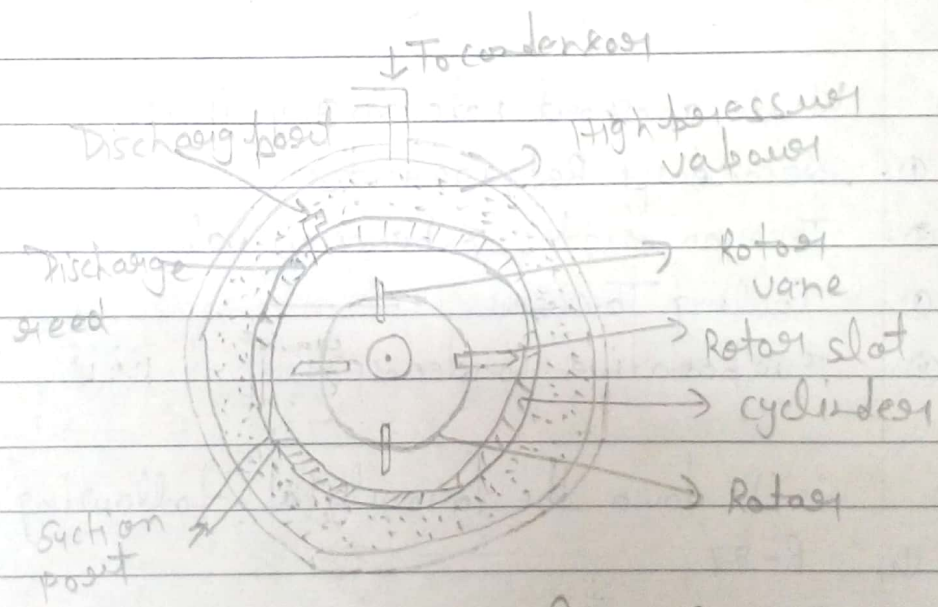 To condenser
Discharg port
High pressure
vapour
Discharge
reed
Rotor
vane
Rotor slot
cylinder
Rotor
Suction
port